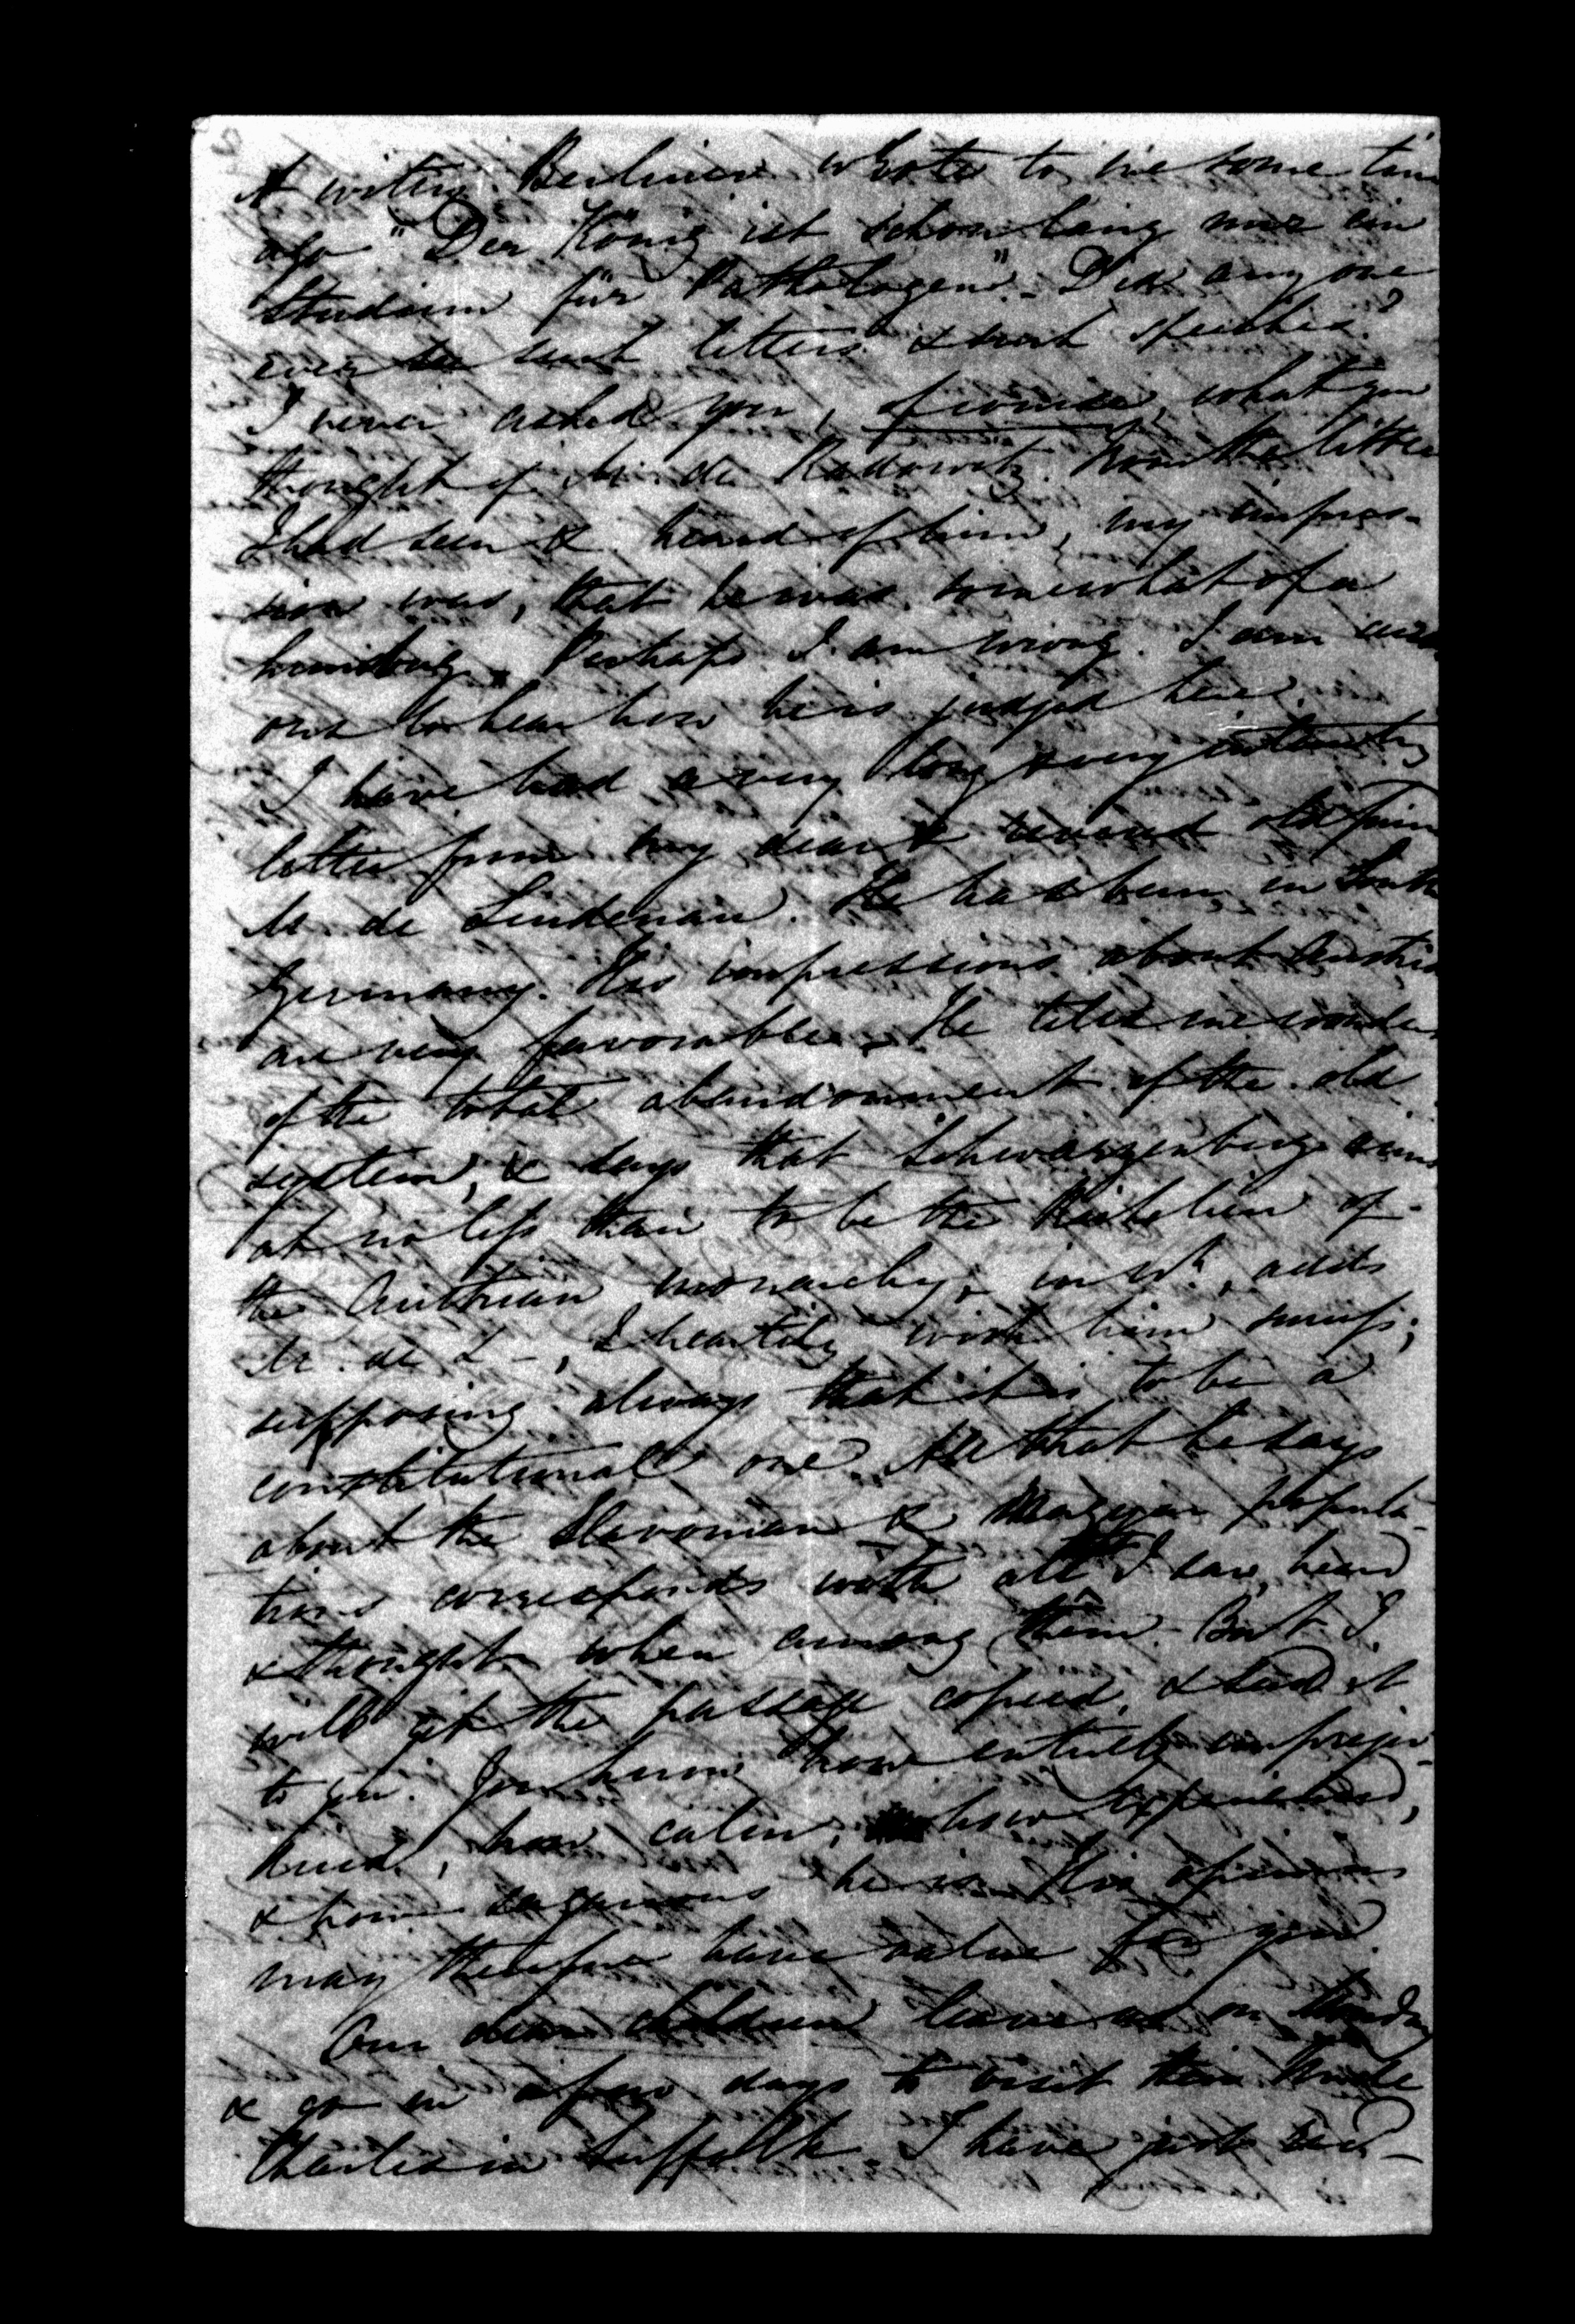 A witty Berliner wrote to me some time
ago "Der König ist schon lang nur ein
Studium für Pathologen" - Did any one
ever see such letters & such speeches?
I never asked you, of course, what you
thought of M. de Radowitz. From the little
I had seen & heard of him, my impres-
sion was, that he was somewhat of a
humbug. Perhaps I am wrong. I am curi
ous to hear how he is judged here.
I have had a very long & very interesting
letter from my dear & revered old friend
M. de Lindenau. He has been in South
Germany. His impressions about Austria
are very favorable. He tells me wonders
of the total abandonment of the old
system, & says that Schwarzenberg aims
at no less than to be the Richelieu of
the Austrian monarchy, in wh, adds
M. de L -, I heartily wish him success;
supposing always that it is to be a
constitutional one. All that he says
about the Slavonian & Magyar popula-
tions corresponds with all I saw, heard
& thought when among them - But I
will get the passage copied, & send it
to you. You know how entirely unpreju-
diced, how calm, how experienced,
& how sagacious he is. His opinions
may therefore have value for you.
Our dear children leave us on Monday
& go in a few days to visit their Uncle
Charles in Suffolk. I have just